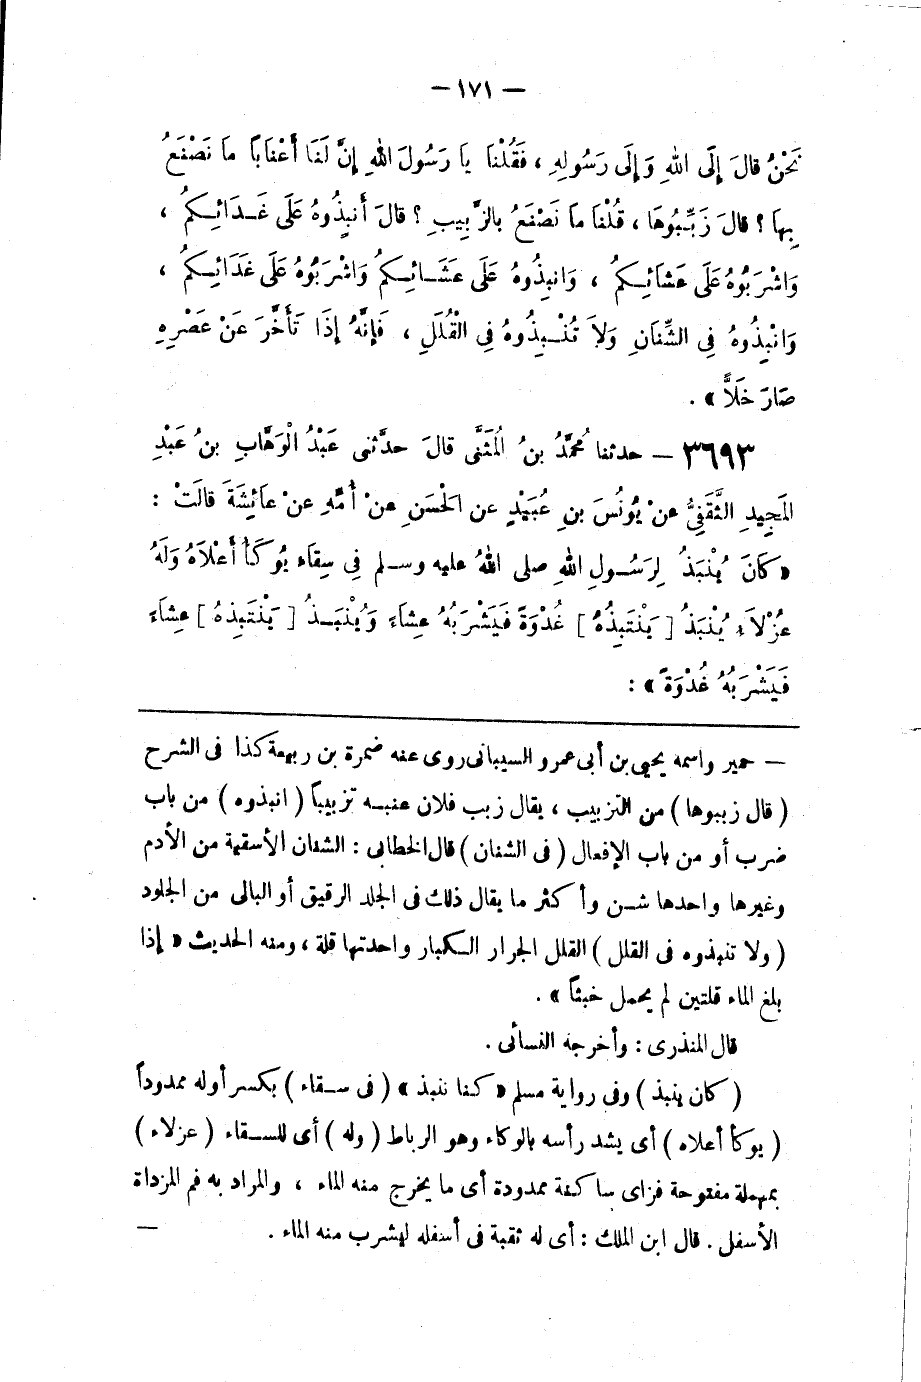 — ١٧١ —
نَحْنُ قالَ إِلَى اللهِ وَإِلَى رَسُولِهِ ، فَقُلْنَا يا رَسُولَ اللهِ إِنَّ لَنَا أَعْنَاباً ما نَصْنَعُ
بِهَا ؟ قالَ زَبِّبُوهَا ، قُلْنَا ما نَصْنَعُ بالزَّبِيبِ ؟ قالَ أَنبِذُوهُ عَلَى غَدَائِكمُ ،
وَاشْرَبُوهُ عَلَى عَشَائِكمُ ، وَانبِذُوهُ عَلَى عَشَائِكمُ وَاشْرَبُوهُ عَلَى غَدَائِكمُ ،
وَانْبِذُوهُ فِى الشِّنَانِ وَلاَ تَنْبِذُوهُ فِى الْقُلَلِ ، فَإِنَّهُ إِذَا تَأَخَّرَ عَنْ عَصْرِهِ
صَارَ خَلَاًّ » .
٣٦٩٣ — حدثنا مُحمَّدُ بنُ المُثَنَّى قالَ حدَّثنى عَبْدُ الْوَهَّابِ بنُ عَبْدِ
المَجِيدِ الثَّقَفِىُّ عنْ يُونُسَ بنِ عُبَيْدٍ عن الْحْسَنِ عنْ أُمِّهِ عنْ عائِشَةَ قالَتْ :
« كانَ يُنْبَذُ لِرَسُولِ اللهِ صلى اللهُ عليه وسلم فِى سِقَاء يُوكَأُ أَعْلاَهُ وَلَهُ
عزْلاَء يُنْبَذُ [ يَنْتَبِذُهُ ] غُدْوَةً فَيَشْرَبُهُ عِشاَءً وَيُنْبَذُ [ يَنْتَبِذهُ ] عِشَاءً
فَيَشْرَبُهُ غُدْوَةً » :
— حمير واسمه يحيى بن أبى عمرو السيبانى روى عنه ضمرة بن ربيعة كذا فى الشرح
( قال زببوها ) من التزبيب ، يقال زبب فلان عنبه تزبيباً ( انبذوه ) من باب
ضرب أو من باب الإفعال ( فى الشنان ) قال الخطابى : الشنان الأسقية من الأدم
وغيرها واحدها شن وأكثر ما يقال ذلك فى الجلد الرقيق أو البالى من الجلود
( ولا تنبذوه فى القلل ) القلل الجرار الكبار واحدتها قلة ، ومنه الحديث « إذا
بلغ الماء قلتين لم يحمل خبثاً » .
قال المنذرى : وأخرجه النسائى .
( كان ينبذ ) وفى رواية مسلم « كنا ننبذ » ( فى سقاء ) بكسر أوله ممدوداً
( يوكأ أعلاه ) أى يشد رأسه بالوكاء وهو الرباط ( وله ) أى للسقاء ( عزلاء )
بمهملة مفتوحة فزاى ساكنة ممدودة أى ما يخرج منه الماء ، والمراد به فم المزداة
الأسفل . قال ابن الملك : أى له ثقبة فى أسفله ليشرب منه الماء . —